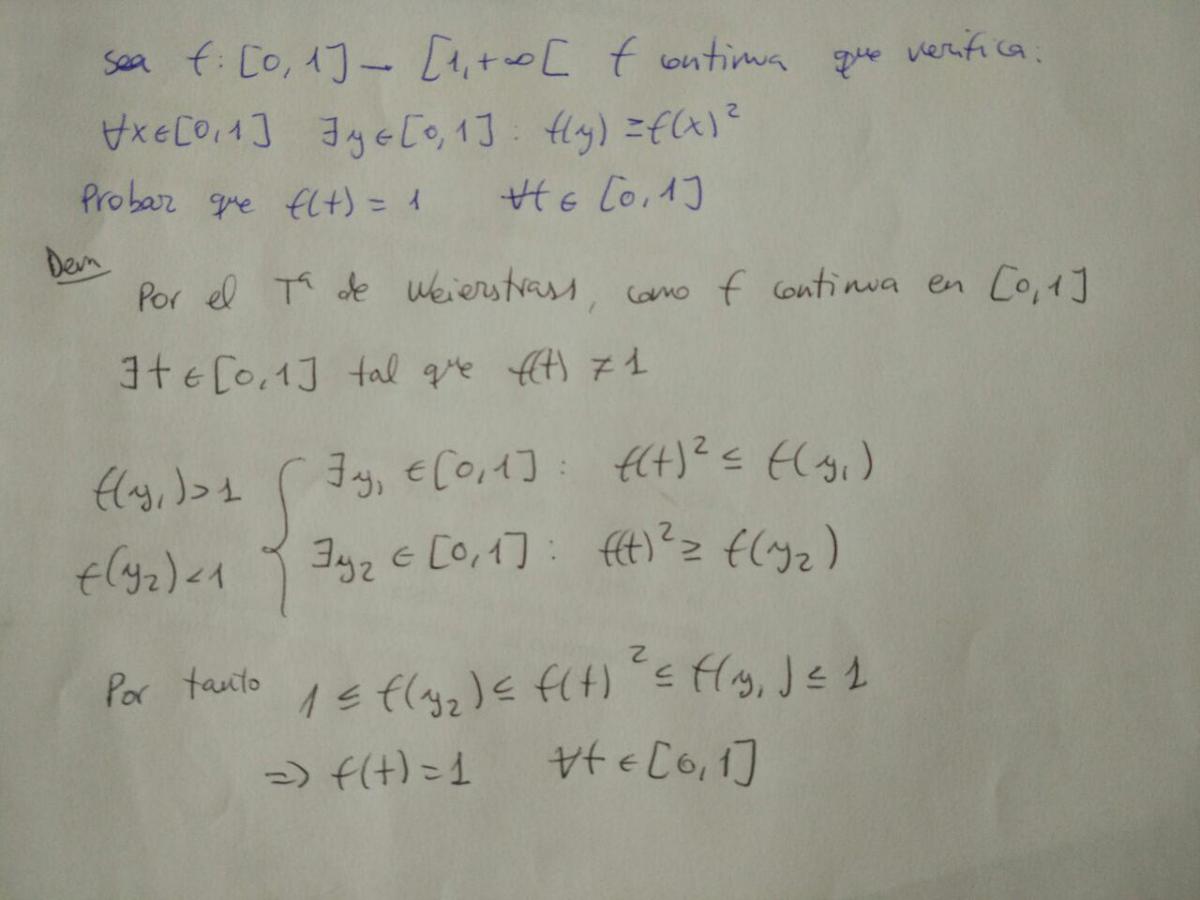 sea f: [0,1] — [1,+∞[ f continua que verifica:
∀x∈[0,1] ∃y∈[0,1] : f(y) = f(x)²
Probar que f(t) = 1 ∀t ∈ [0,1]
Dem
Por el Tª de Weierstrass, como f continua en [0,1]
∃t∈[0,1] tal que f(t) ≠ 1
f(y₁)>1 { ∃y₁ ∈[0,1] : f(t)² ≤ f(y₁)
f(y₂)<1 { ∃y₂ ∈ [0,1] : f(t)² ≥ f(y₂)
Por tanto 1 ≤ f(y₂) ≤ f(t)² ≤ f(y₁) ≤ 1
=> f(t)=1 ∀t ∈ [0,1]